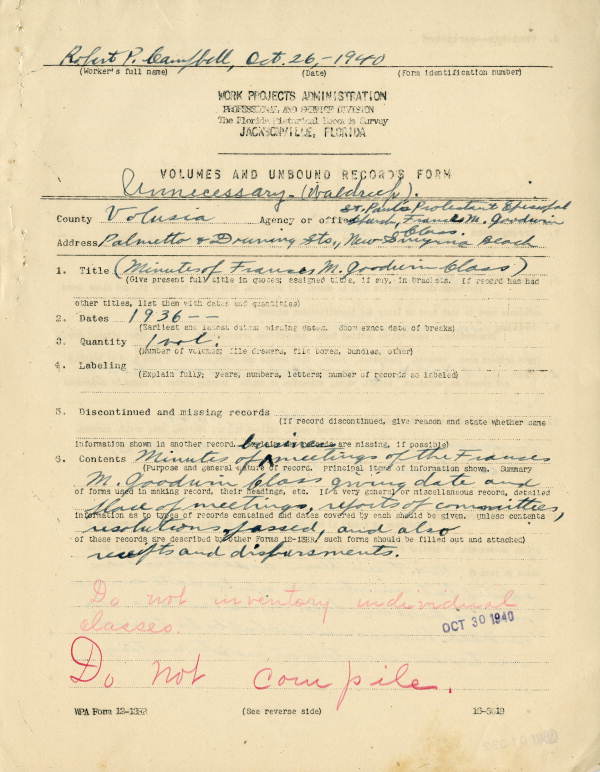 Robert P. Campbell, Oct. 26,-1940
(Worker's full name) (Date) (Form identification number)
WORK PROJECTS ADMINISTRATION
PROFESSIONAL AND SERVICE DIVISION
The Florida Historical Records Survey
JACKSONVILLE, FLORIDA
VOLUMES AND UNBOUND RECORDS FORM
Unnecessary - (Waldrich).
St. Paul's Protestant Episcopal
County Volusia Agency or office Church, Frances M. Goodwin
Class.
Address Palmetto & Downing Sts., New Smyrna Beach
1. Title (Minutes of Frances M. Goodwin Class)
(Give present full title in quotes; assigned title, if any, in brackets. If record has had
other titles, list them with dates and quantities)
2. Dates 1936 --
(Earliest and latest dates; missing dates. Show exact date of breaks)
3. Quantity 1 vol.
(Number of volumes; file drawers, file boxes, bundles, other)
4. Labeling
(Explain fully; years, numbers, letters; number of records so labeled)
5. Discontinued and missing records
(If record discontinued, give reason and state whether same
information shown in another record. Explain why records are missing, if possible)
business
6. Contents Minutes of meetings of the Frances
(Purpose and general nature of record. Principal items of information shown. Summary
M. Goodwin Class giving date and
of forms used in making record, their headings, etc. If a very general or miscellaneous record, detailed
place of meetings, reports of committees,
information as to types of records contained and dates covered by each should be given. (Unless contents
resolutions passed, and also
of these records are described by other Forms 12-13HR, such forms should be filled out and attached)
receipts and disbursments.
Do not inventory individual
classes.
OCT 30 1940
Do not compile.
WPA Form 12-13HR (See reverse side)